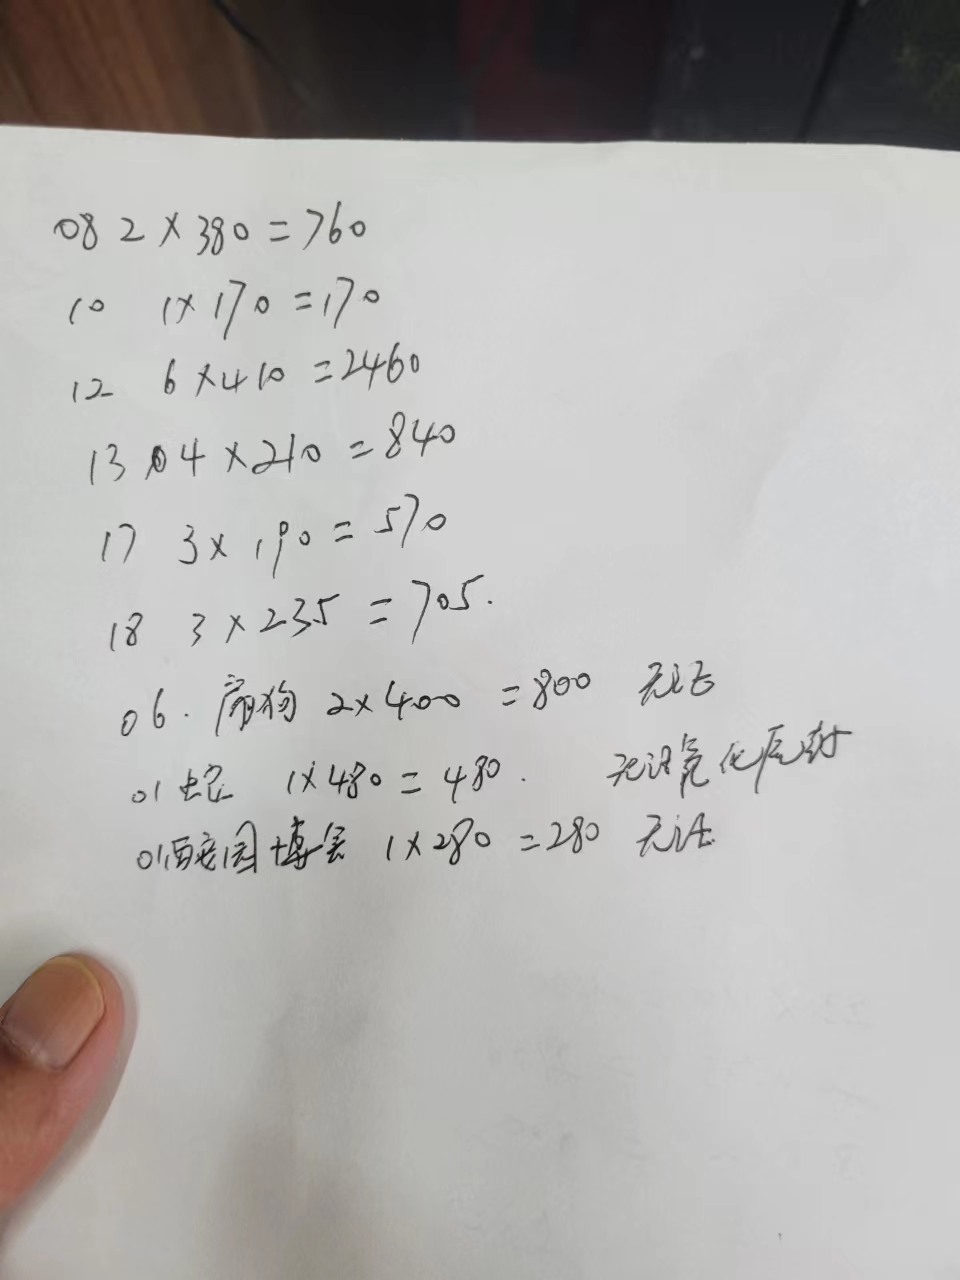 08 2×380=760
10 1×170=170
12 6×410=2460
13 4×210=840
17 3×190=570
18 3×235=705.
06. 扇狗 2×400=800 无证
01蛇 1×480=480. 无证氧化后封
01 园博会 1×280=280 无证